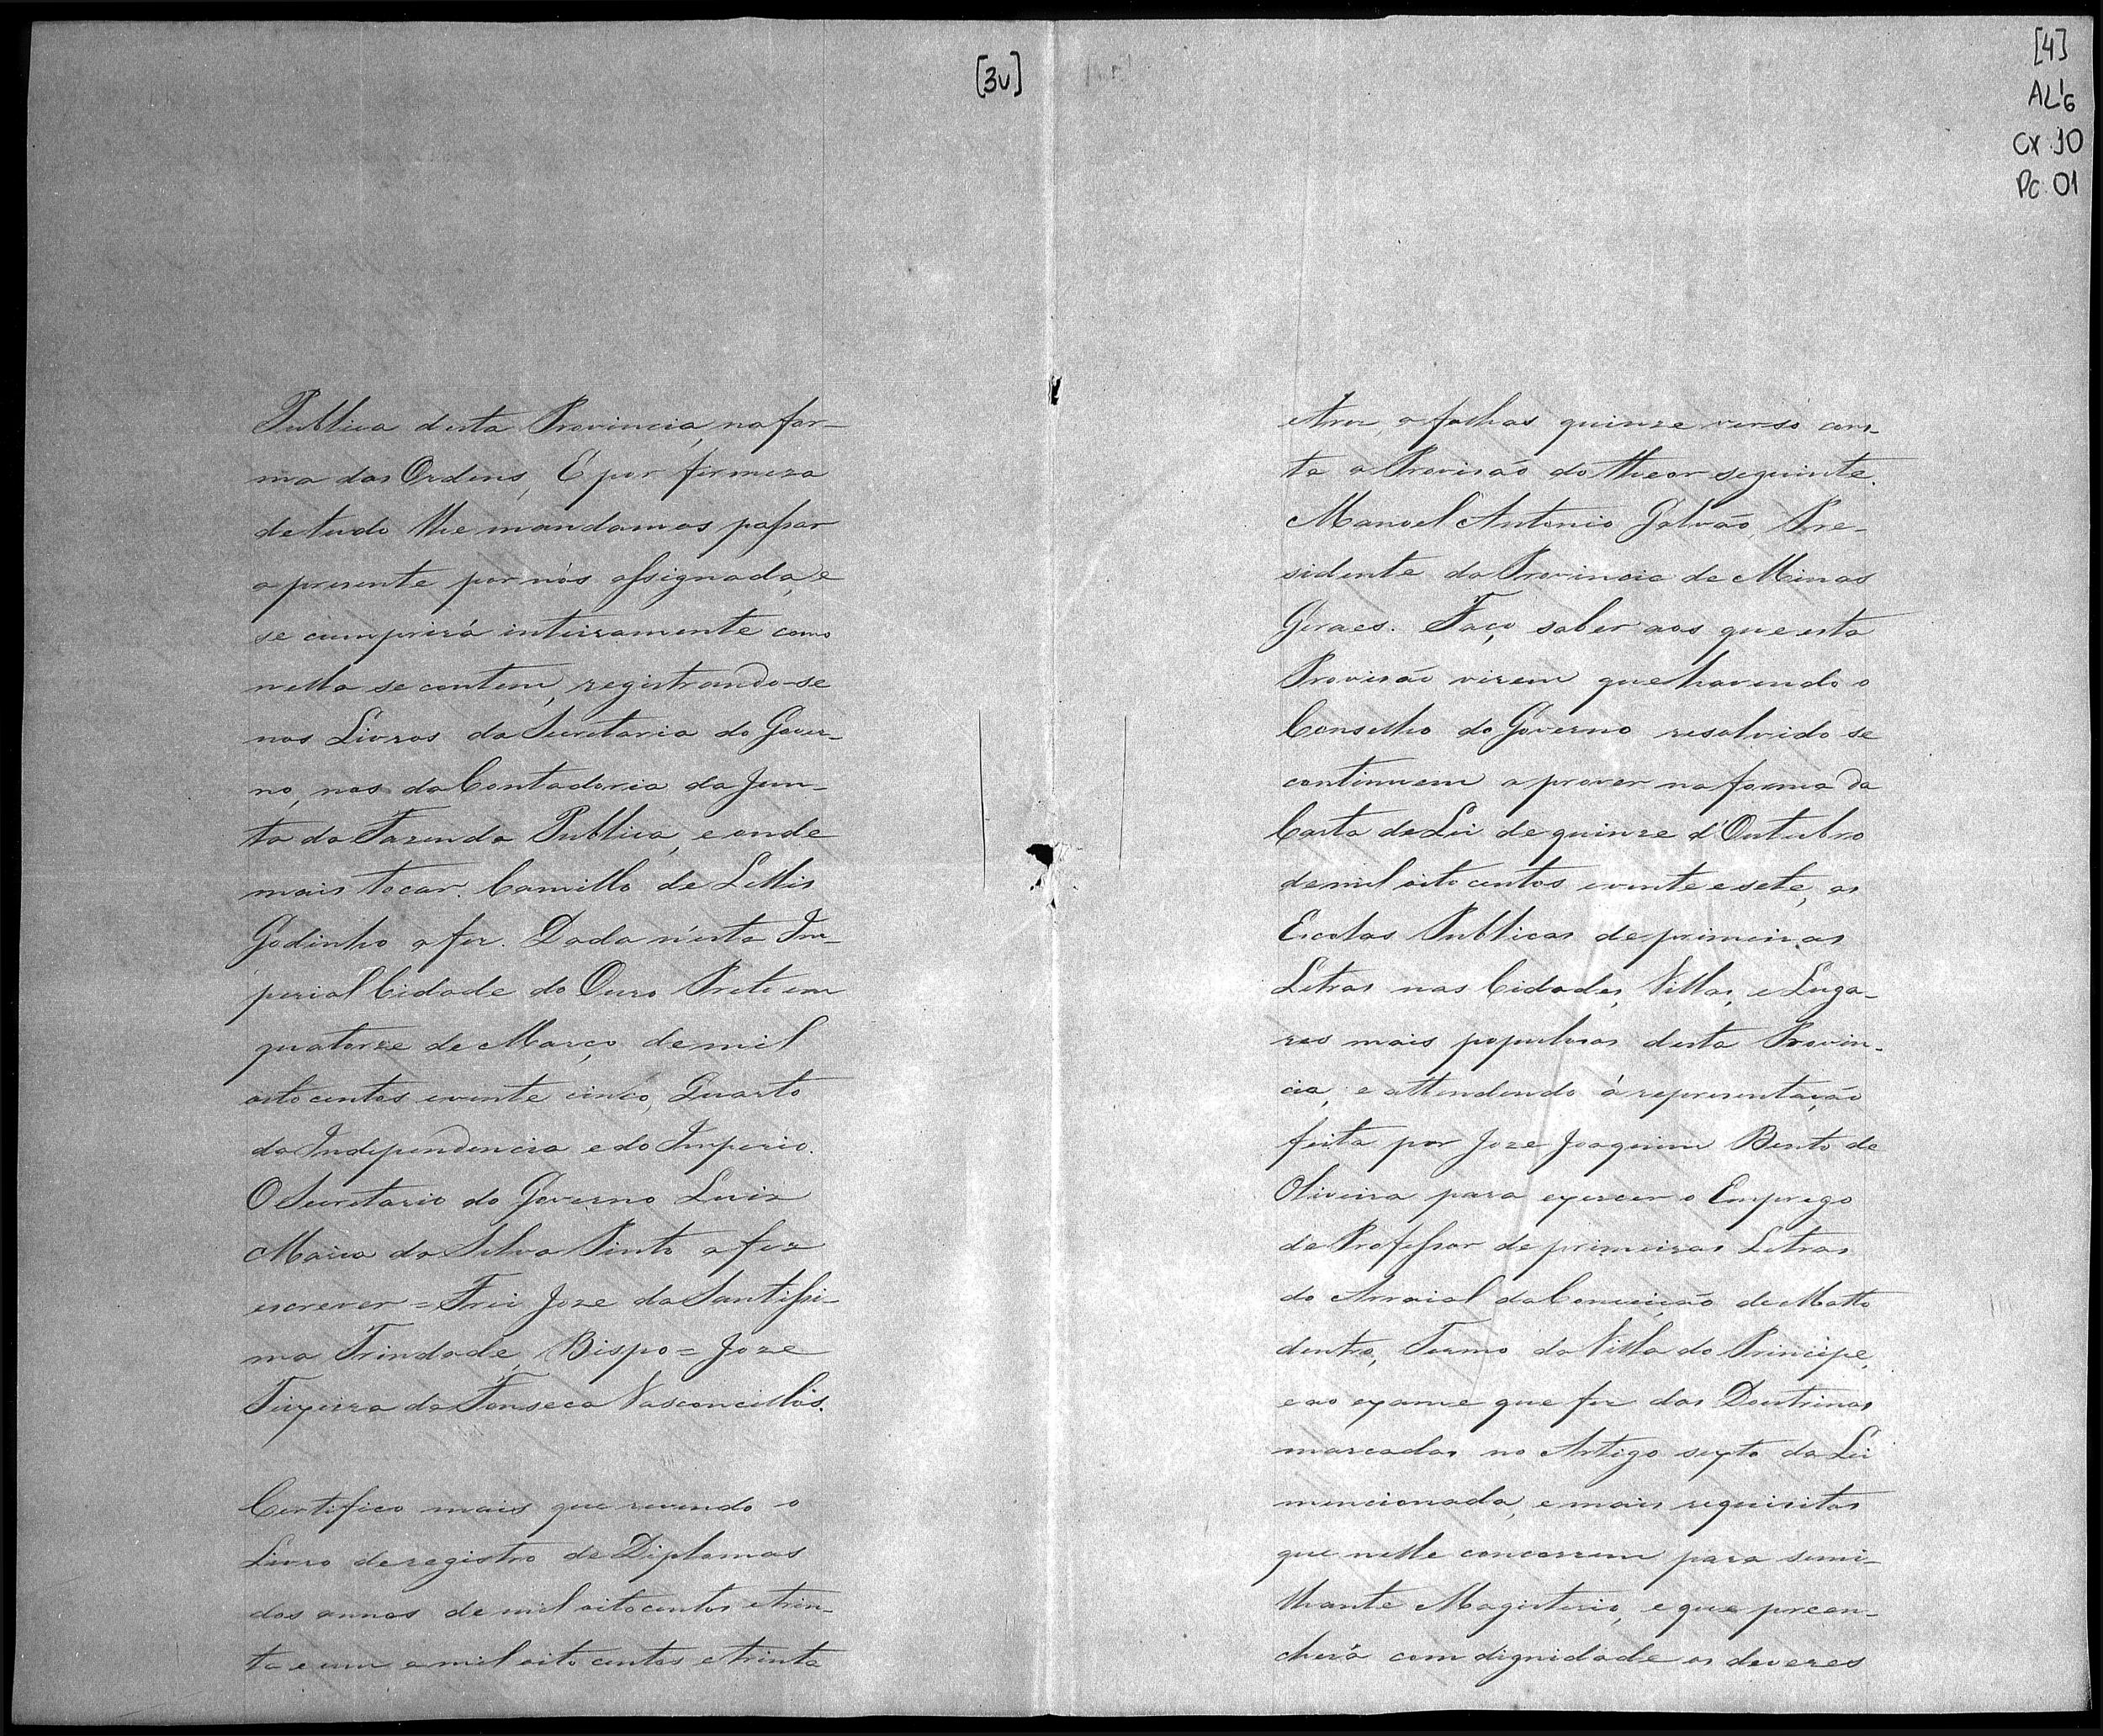 [3v]
Publica desta Provincia, na for-
ma das Ordens, E por firmeza
de tudo lhe mandamos passar
a presente por nós assignada, e
se cumprirá inteiramente como
nella se contem, registrando-se
nos Livros da Secretaria do Gover-
no, nos da Contadoria da Jun-
ta da Fazenda Publica, e onde
mais tocar. Camillo de Lellis
Godinho a fez. Dada n'esta Im-
perial Cidade do Ouro Preto em
quatorze de Março de mil
oito centos e vinte cinco, Quarto
da Independencia e do Imperio.
O Secretario do Governo Luiz
Maria da Silva Pinto a fez
escrever = Frei Joze da Santissi-
ma Trindade, Bispo = Joze
Teixeira da Fonseca Vasconcellos.
Certifico mais que revendo o
Livro de registro de Diplomas
dos annos de mil oitocentos e trin-
ta e um a mil oito centos e trinta
[4]
AL16
Cx. 10
Pc. 01
e tres, a folhas quinze verso cons-
ta a Provisão do theor seguinte.
Manoel Antonio Galvão, Pre-
sidente da Provincia de Minas
Geraes. Faço saber aos que esta
Provisão virem que havendo o
Conselho do Governo resolvido se
continuem a prover na forma da
Carta de Lei de quinze d'Outubro
de mil oito centos e vinte e sete, as
Escolas Publicas de primeiras
Letras nas Cidades, Villas, e Luga-
res mais populosos desta Provin-
cia, e attendendo á representação
feita por Joze Joaquim Bento de
Oliveira para exercer o Emprego
de Professor de primeiras Letras
do Arraial da Conceição de Matto
dentro, Termo da Villa do Principe,
e ao exame que fez das Doutrinas
marcadas no Artigo sexto da Lei
mencionada, e mais requisitos
que nelle concorrem para simi-
lhante Magisterio, e que preen-
cherá com dignidade os deveres